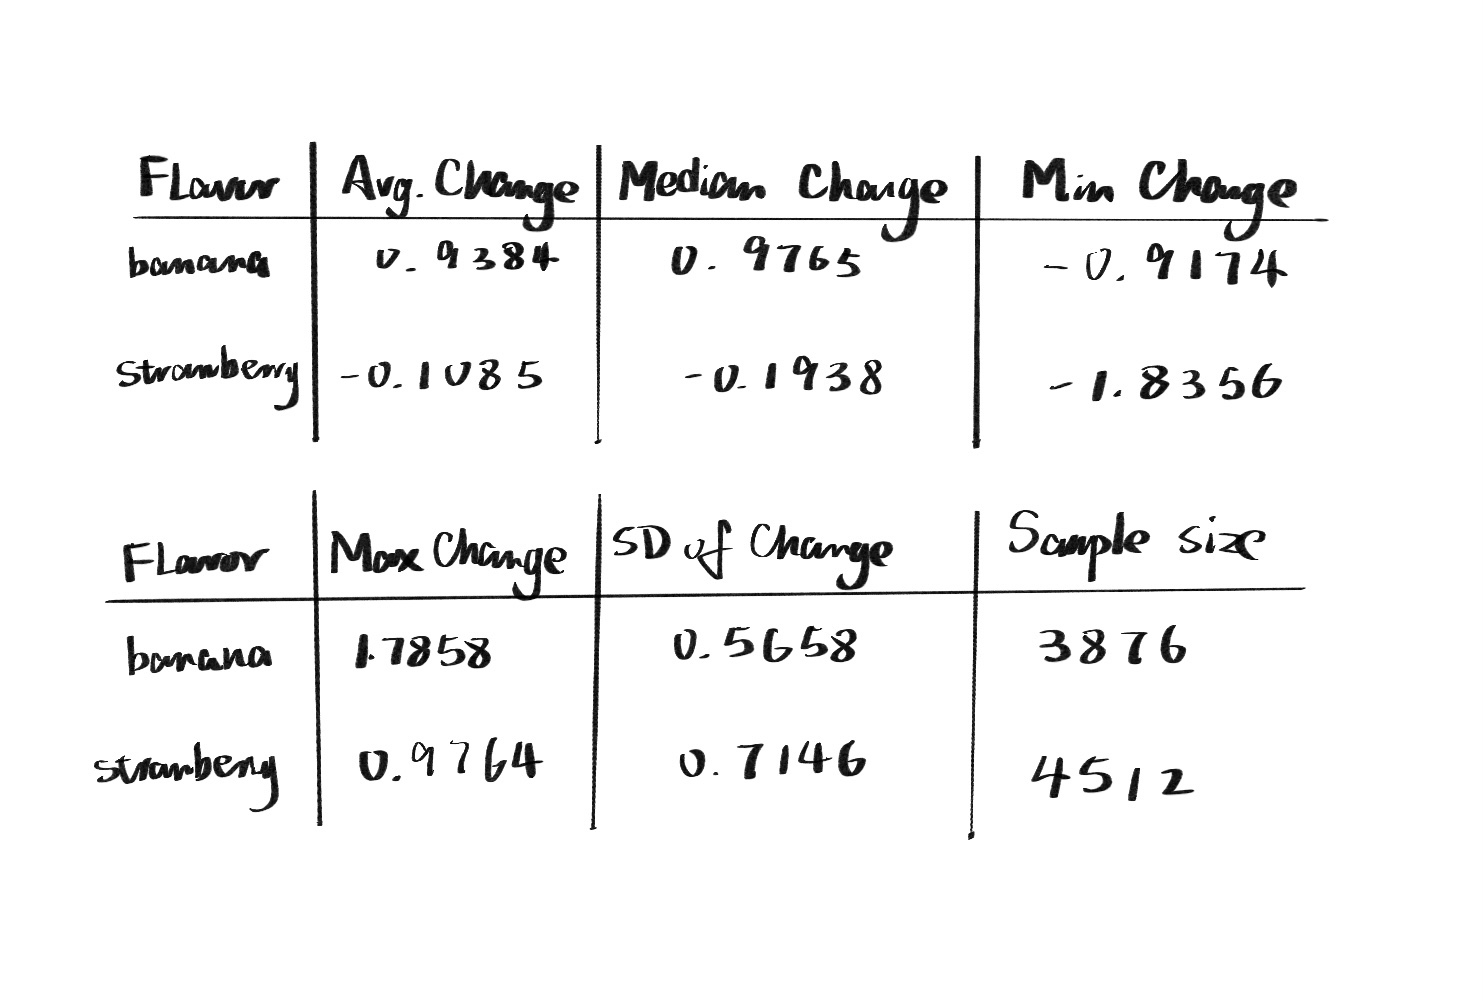 Flavor Avg. Change Median Change Min Change
banana 0.9384 0.9765 -0.9174
strawberry -0.1085 -0.1938 -1.8356
Flavor Max Change SD of Change Sample size
banana 1.7858 0.5658 3876
strawberry 0.9764 0.7146 4512